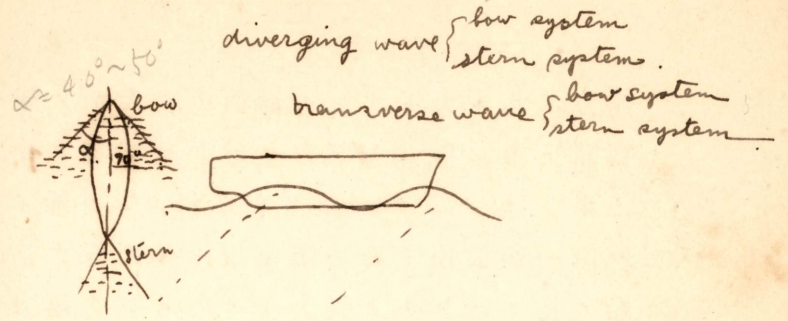 diverging wave { bow system
stern system.
transverse wave { bow system
stern system
α = 40° ~ 50°
bow
α 90°
stern